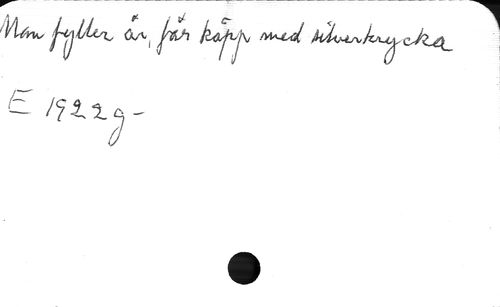 Man fyller år, får käpp med silverkrycka
E 1922g-